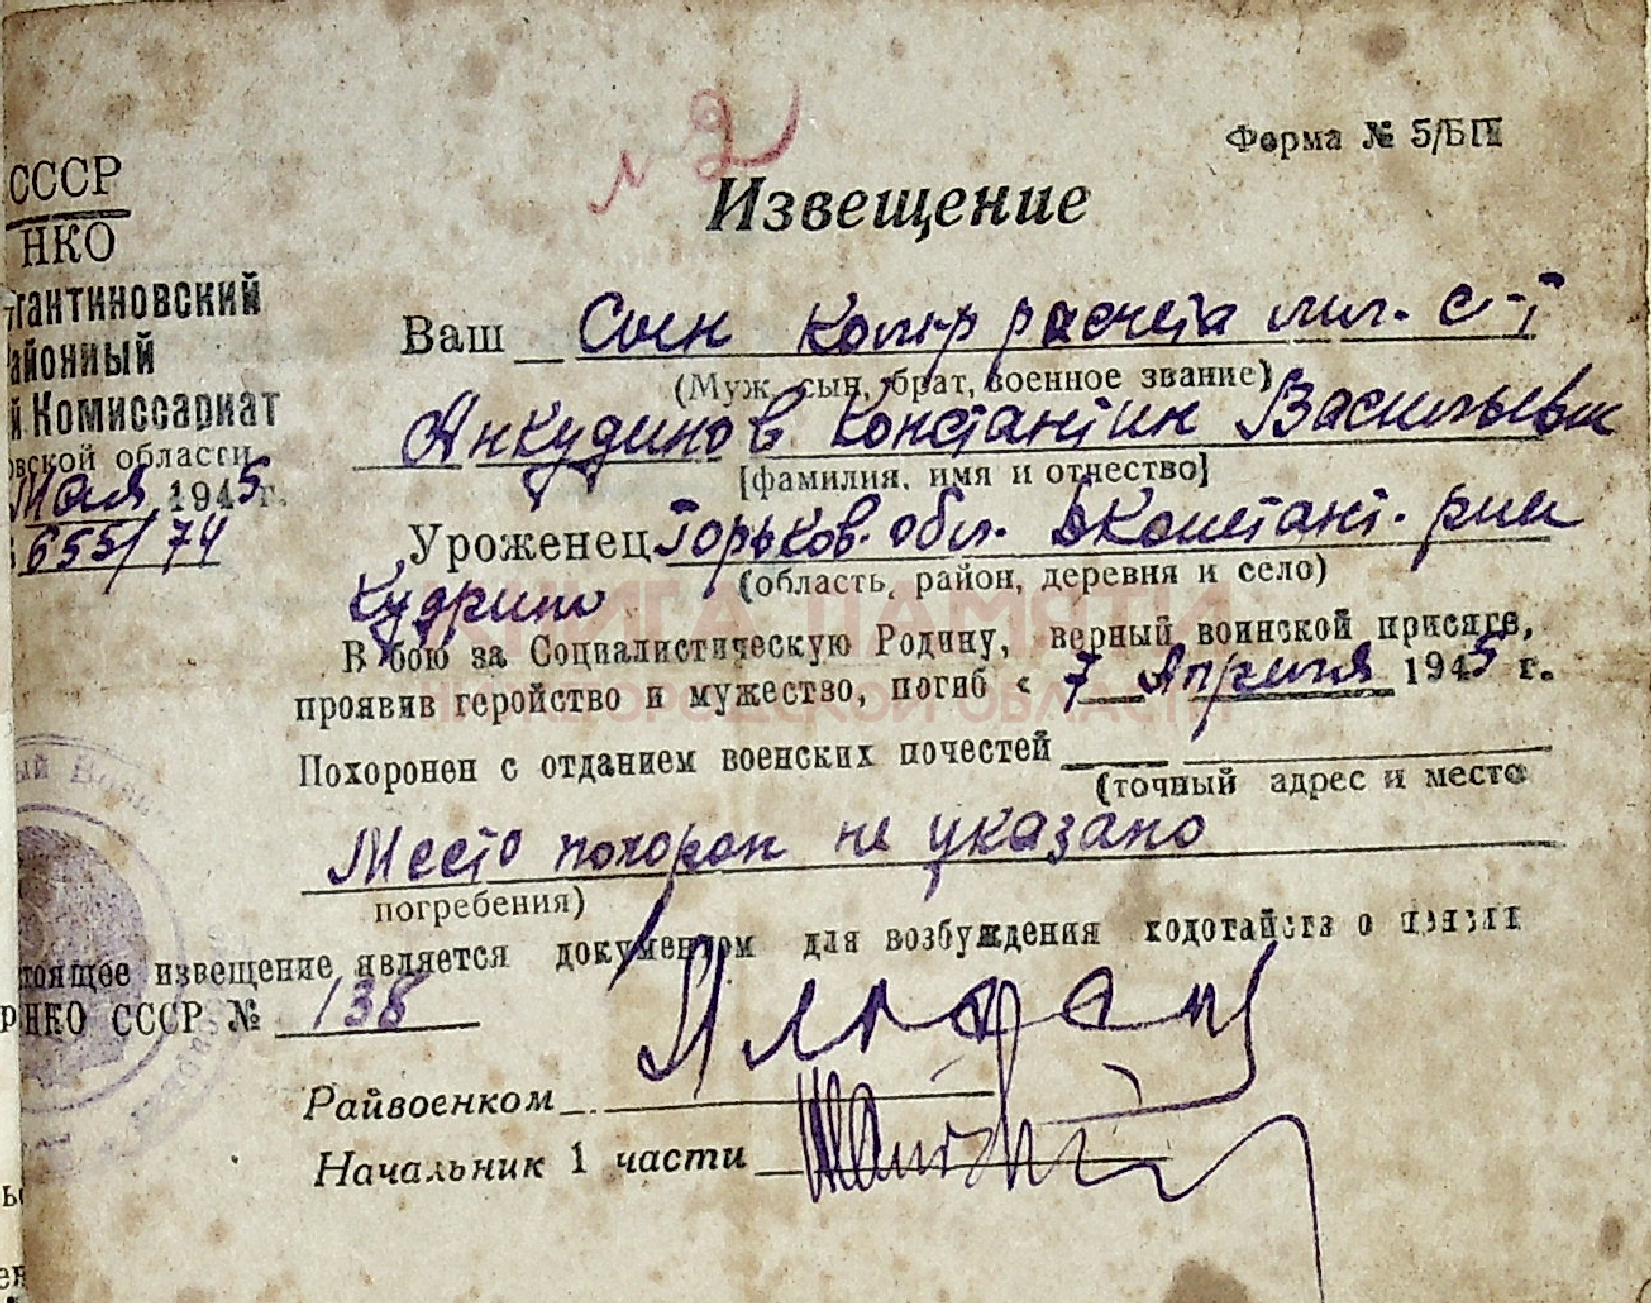 Форма № 5/БП
№ 2
Извещение
СССР
НКО
тантиновский
айонный
й Комиссариат
овской области
Мая 1945 г.
655/74
Ваш Сын ком-р расчета мл. с-т
(Муж, сын, брат, военное звание)
Анкудинов Константин Васильевич
[фамилия, имя и отчество]
Уроженец Горьков. обл. Б Констант. р-на
(область, район, деревня и село)
Кудрино
КНИГА ПАМЯТИ
НИЖЕГОРОДСКОЙ ОБЛАСТИ
В бою за Социалистическую Родину, верный воинской присяге,
проявив геройство и мужество, погиб « 7 Апреля 1945 г.
Похоронен с отданием военских почестей
(точный адрес и место
Место похорон не указано
погребения)
тоящее извещение является документом для возбуждения ходотайств о
р НКО СССР № 138
Райвоенком
Начальник 1 части